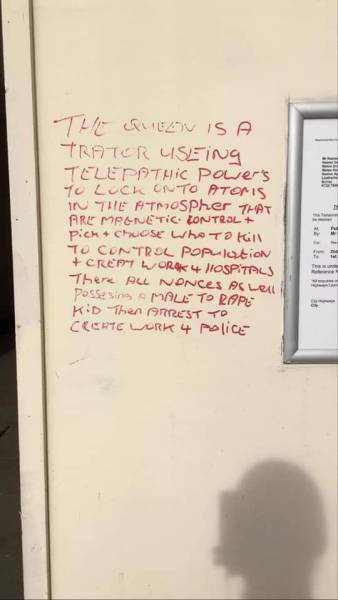 THE QUEEN IS A
TRATOR USEING
TELEPATHIC POWERS
TO LOCK ONTO ATOMS
IN THE ATMOSPHER THAT
ARE MAGNETIC. CONTROL +
PICK + CHOOSE WHO TO KILL
TO CONTROL POPULATION
+ CREAT WORK 4 HOSPITALS
THERE ALL NONCES AS WELL
POSSESING A MALE TO RAPE
KID THEN ARREST TO
CREATE WORK 4 POLICE